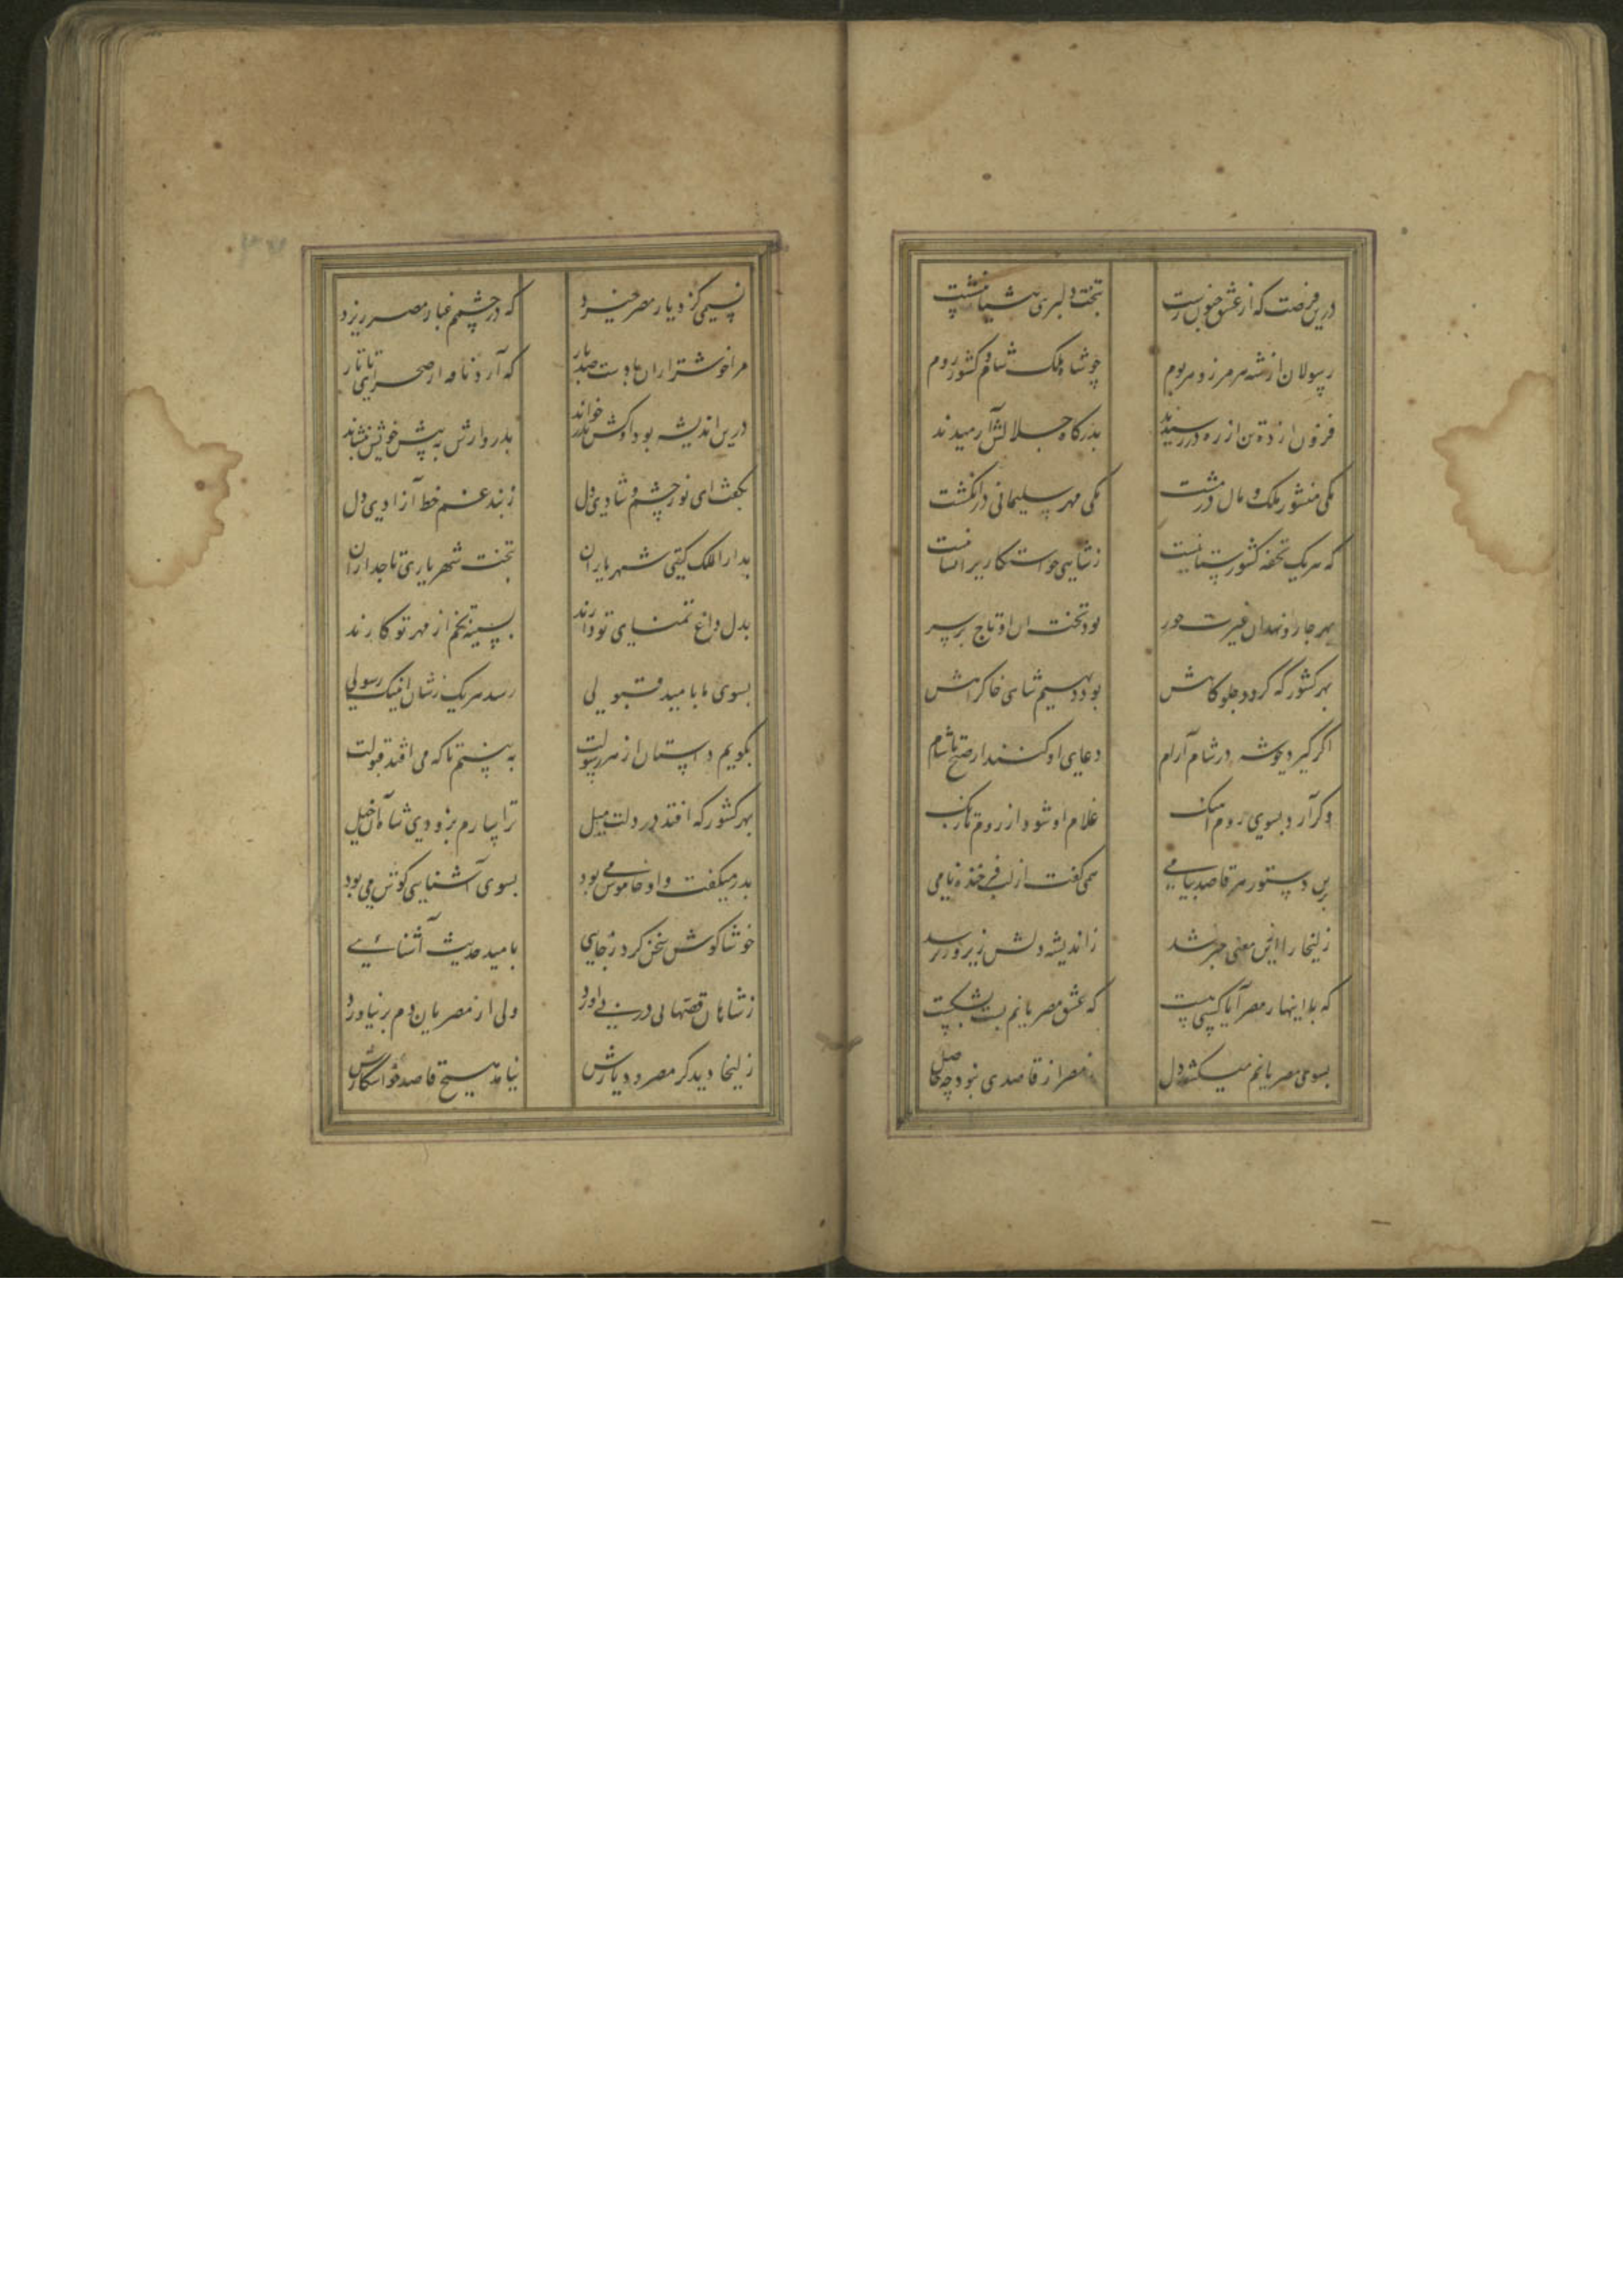 درین فرصت که از عشق جنون رست
بتخت دلبری هشیار بنشست
رسولان از شه هر مرز و هر بوم
چو شاه ملک شام و کشور روم
فزون از ده تن از ره در رسیدند
بدرگاه جلالش آرمیدند
یکی منشور ملک و مال در مشت
یکی مهر سلیمانی در انگشت
که هر یک تحفه کشورستانیست
ز شاهی خواستگاریرا نشانیست
بهر جا رو نهد آن غیرت حور
بود تخت آن او تاج بر سر
بهر کشور که گردد جلوه‌گاهش
بود دیهیم شاهی خاک راهش
اگر گیرد چو شه در شام آرام
دعای او کنند از صبح تا شام
وگر آرد بسوی روم آهنگ
غلام او شود از روم تا زنگ
برین دستور هر قاصد پیامی
همی گفت از لب فرخنده نامی
زلیخا را ازین معنی خبر شد
ز اندیشه دلش زیر و زبر شد
که با اینها ز مصر آیا کسی هست
که عشق مصریانم پشت بشکست
بسوی مصریانم میکشد دل
ز مصر از قاصدی نبود چه حاصل
نسیمی کز دیار مصر خیزد
که در چشمم غبار مصر ریزد
مرا خوشتر ازان بادست صد بار
که آرد نافه از صحرای تاتار
درین اندیشه بود او کش پدر خواند
پدروارش به پیش خویش بنشاند
بگفت ای نور چشم و شادی دل
ز بند غم خط آزادی دل
بدار الملک گیتی شهریاران
بتخت شهریاری تاجداران
بدل داغ تمنای تو دارند
بسینه تخم از مهر تو کارند
بسوی ما بامید قبولی
رسد هر یک ز شان اینک رسولی
بگویم داستان از هر رسولت
ببینم تا که می افتد قبولت
بهر کشور که افتد در دلت میل
ترا سازم بزودی شاه آن خیل
پدر میگفت و او خاموش می بود
بسوی آشنایی گوش می بود
خوشا گوش سخن کردن ز جایی
بامید حدیث آشنائیی
ز شاهان قصهای در پی آورد
ولی از مصریان دم بر نیاورد
زلیخا دید کز مصر و دیارش
نیامد هیچ قاصد خواستگارش